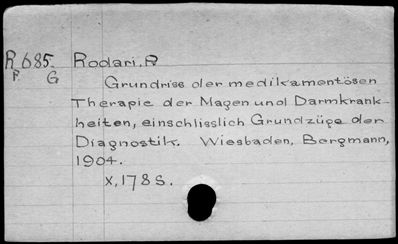 R685. Rodari. P
P. G
Grundriss der medikamentösen
Therapie der Magen und Darmkrank-
heiten, einschlisslich Grundzüge der
Diagnostik. Wiesbaden, Bergmann,
1904.
X, 178 S.